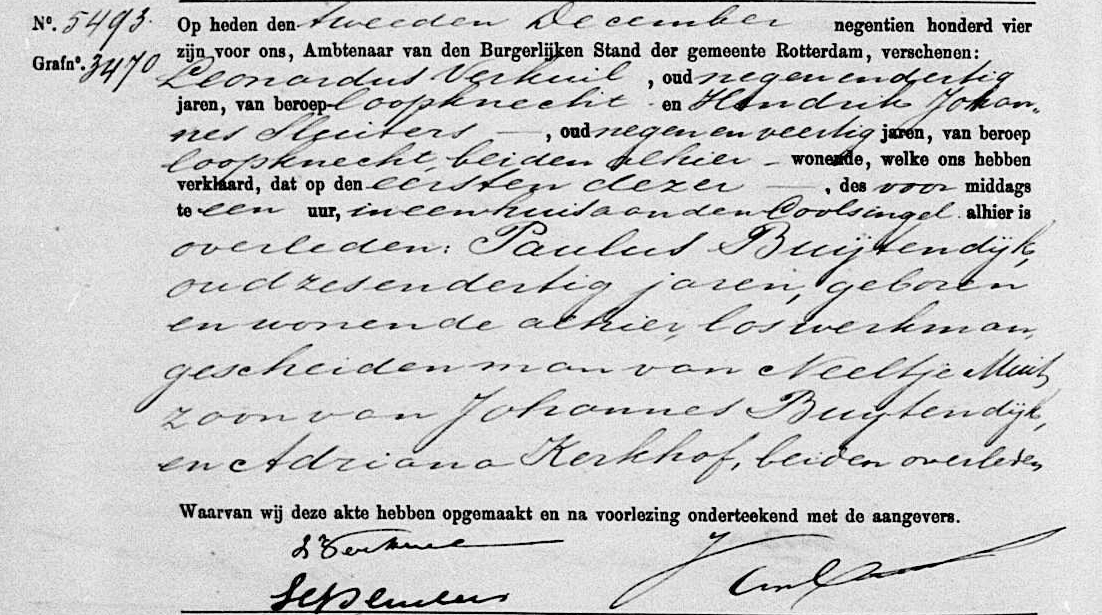 No. 5493. Op heden den tweeden December negentien honderd vier
zijn voor ons, Ambtenaar van den Burgerlijken Stand der gemeente Rotterdam, verschenen:
Grafno. 3470 Leonardus Verkuil, oud negenendertig
jaren, van beroep loopknecht en Hendrik Johan-
nes Sluiters —, oud negen en veertig jaren, van beroep
loopknecht, beiden alhier - wonende, welke ons hebben
verklaard, dat op den eersten dezer —, des voor middags
te een uur, in een huis aan den Coolsingel alhier is
overleden: Paulus Buijtendijk,
oud zesendertig jaren, geboren
en wonende alhier, los werkman,
gescheiden man van Neeltje Muit,
zoon van Johannes Buijtendijk,
en Adriana Kerkhof, beiden overleden
Waarvan wij deze akte hebben opgemaakt en na voorlezing onderteekend met de aangevers.
L Verkuil
HJSluiters